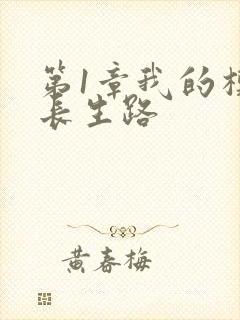 第1章我的
长生路
黄春梅